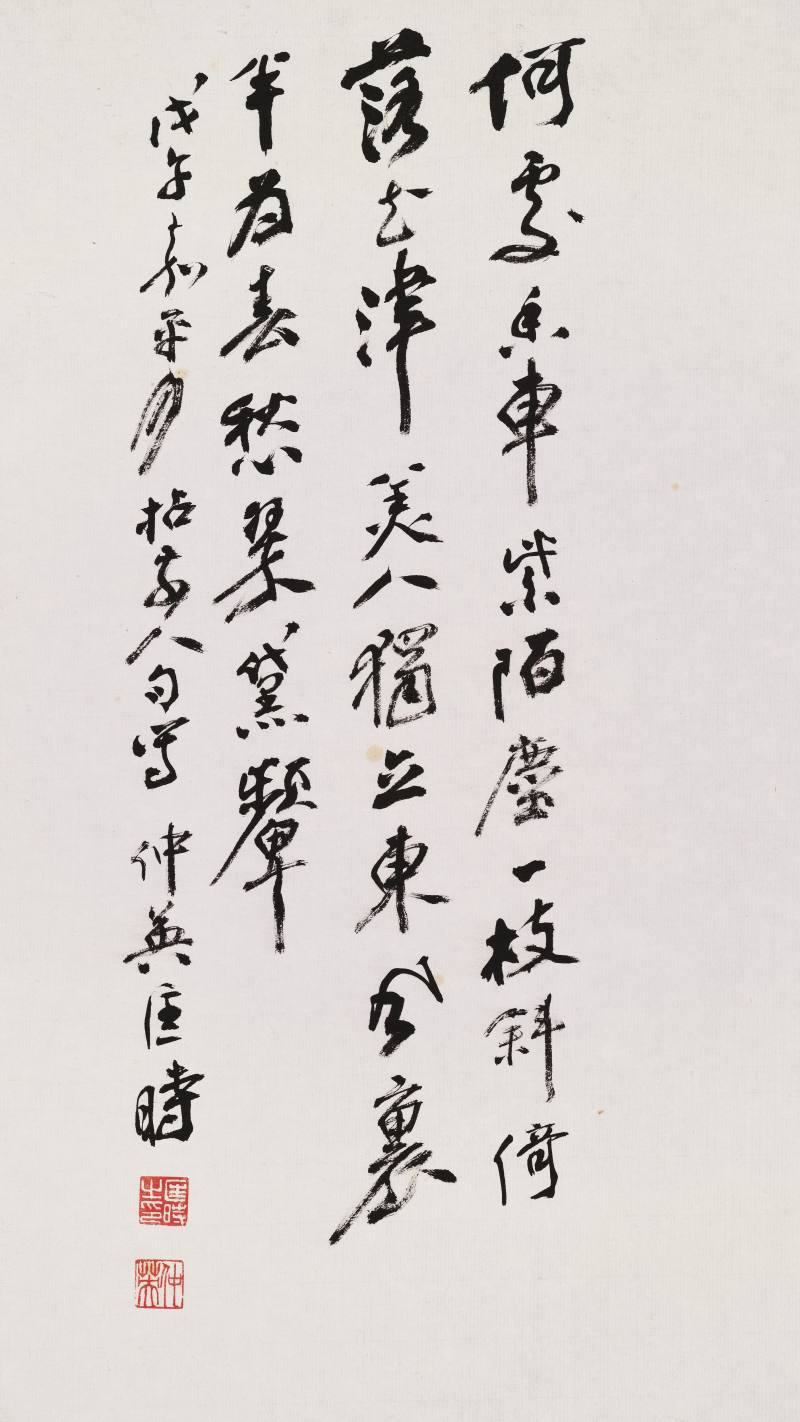 何處香車紫陌塵一枝斜倚
落花津美人獨立東風裏
半為春愁翠黛顰
戊午嘉平月拈前人句寫 仲英匡時
匡時之印
仲英